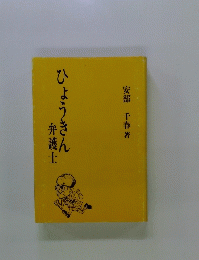 ひょうきん
弁護士
安部 千春著